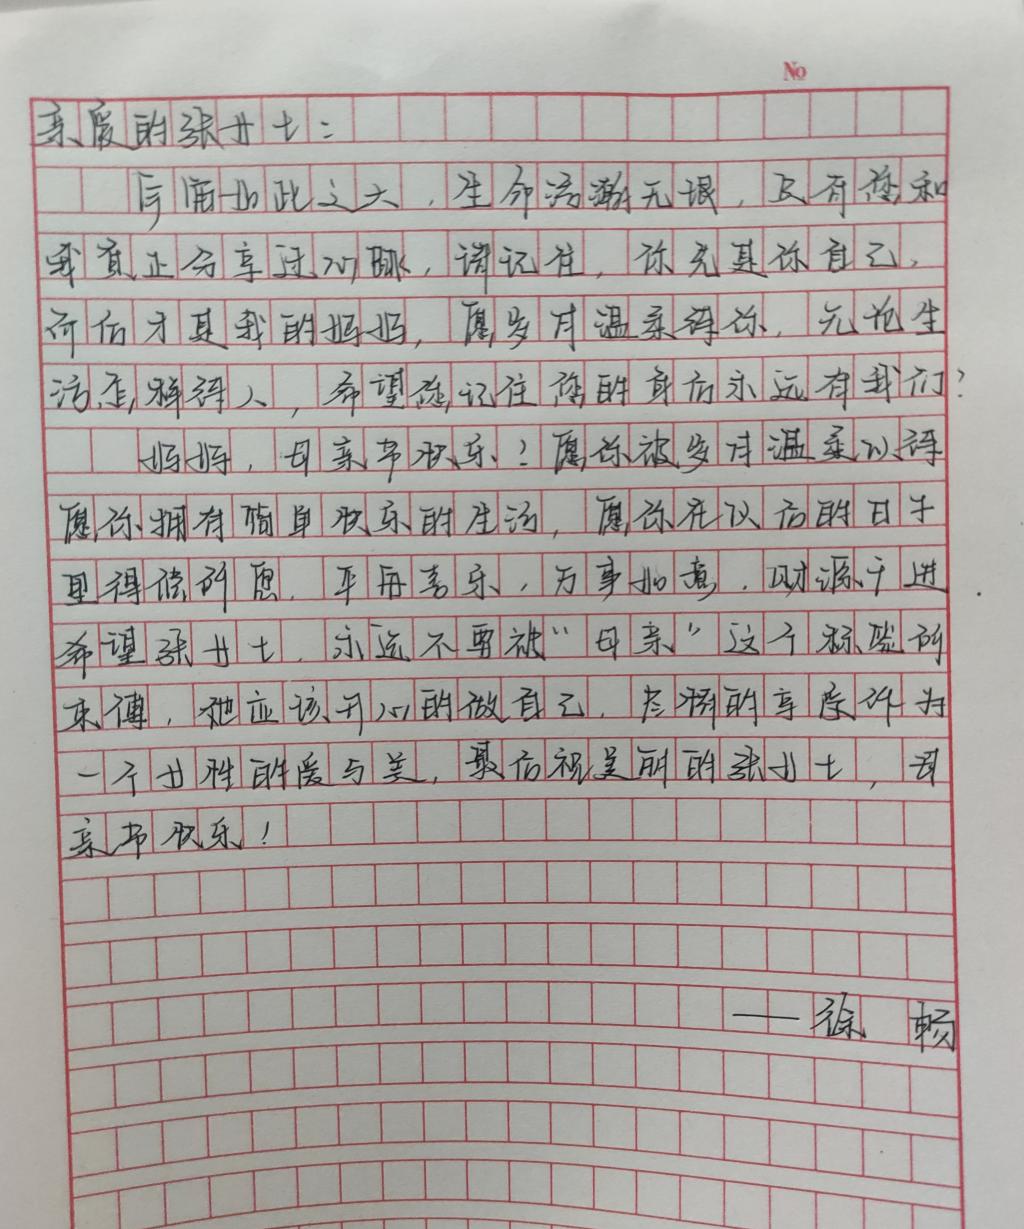 No
亲爱的张女士：
宇宙如此之大，生命活瀚无垠，只有您和
我真正分享过心脉，请记住，你先是你自己，
而后才是我的妈妈，愿岁月温柔待你，无论生
活怎样待人，希望您记住您的身后永远有我们？
妈妈，母亲节快乐！愿你被岁月温柔以待
愿你拥有简单快乐的生活，愿你在以后的日子
里得偿所愿，平安喜乐，万事如意，财源千进
希望张女士，永远不要被“母亲”这个标签所
束缚，她应该开心的做自己，大胆的享受作为
一个女性的爱与美，最后祝美丽的张女士，母
亲节快乐！
——徐 畅